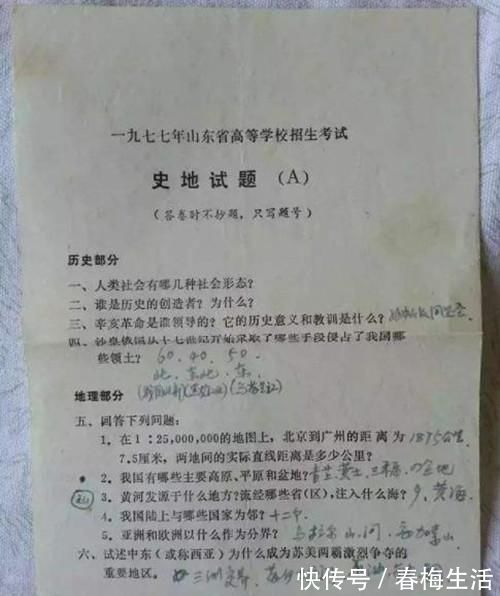 一九七七年山东省高等学校招生考试
史地试题（A）
（答卷时不抄题，只写题号）
历史部分
一、人类社会有哪几种社会形态？
二、谁是历史的创造者？为什么？
三、辛亥革命是谁领导的？它的历史意义和教训是什么？
四、沙皇俄国从十七世纪开始采取了哪些手段侵占了我国哪
些领土？ 60.40.50.
北. 东北. 东.
地理部分
五、回答下列问题：
1，在1：25,000,000的地图上，北京到广州的距离为 1875公里
7.5厘米，两地间的实际直线距离是多少公里？
2，我国有哪些主要高原、平原和盆地？ 青. 黄土. 三 四盆地
3，黄河发源于什么地方？流经哪些省（区），注入什么海？ 9. 黄海
4，我国陆上与哪些国家为邻？ 十二个
5，亚洲和欧洲以什么作分界？ 乌拉尔山.河. 高加索山
六、试述中东（或称西亚）为什么成为苏美两霸激烈争夺的
重要地区。 三洲交界
快传号／春梅生活